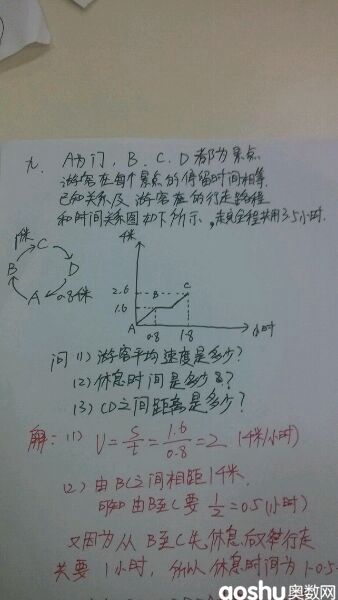 九. A为门, B、C、D都为景点
游客在每个景点的停留时间相等.
已知关系及游客在的行走路程
和时间关系图如下所示, 走完全程共用3.5小时.
1千米
C
B
D
A
0.8千米
千米
2.6
1.6
A
B
C
0.8
1.8
小时
问 (1) 游客平均速度是多少?
(2) 休息时间是多少?
(3) CD之间距离是多少?
解: (1) V = S/t = 1.6/0.8 = 2 (千米/小时)
(2) 由BC之间相距1千米.
即知由B至C要 1/2 = 0.5 (小时)
又因为从B至C先休息后又行走
共要1小时, 所以休息时间为1-0.5
aoshu奥数网